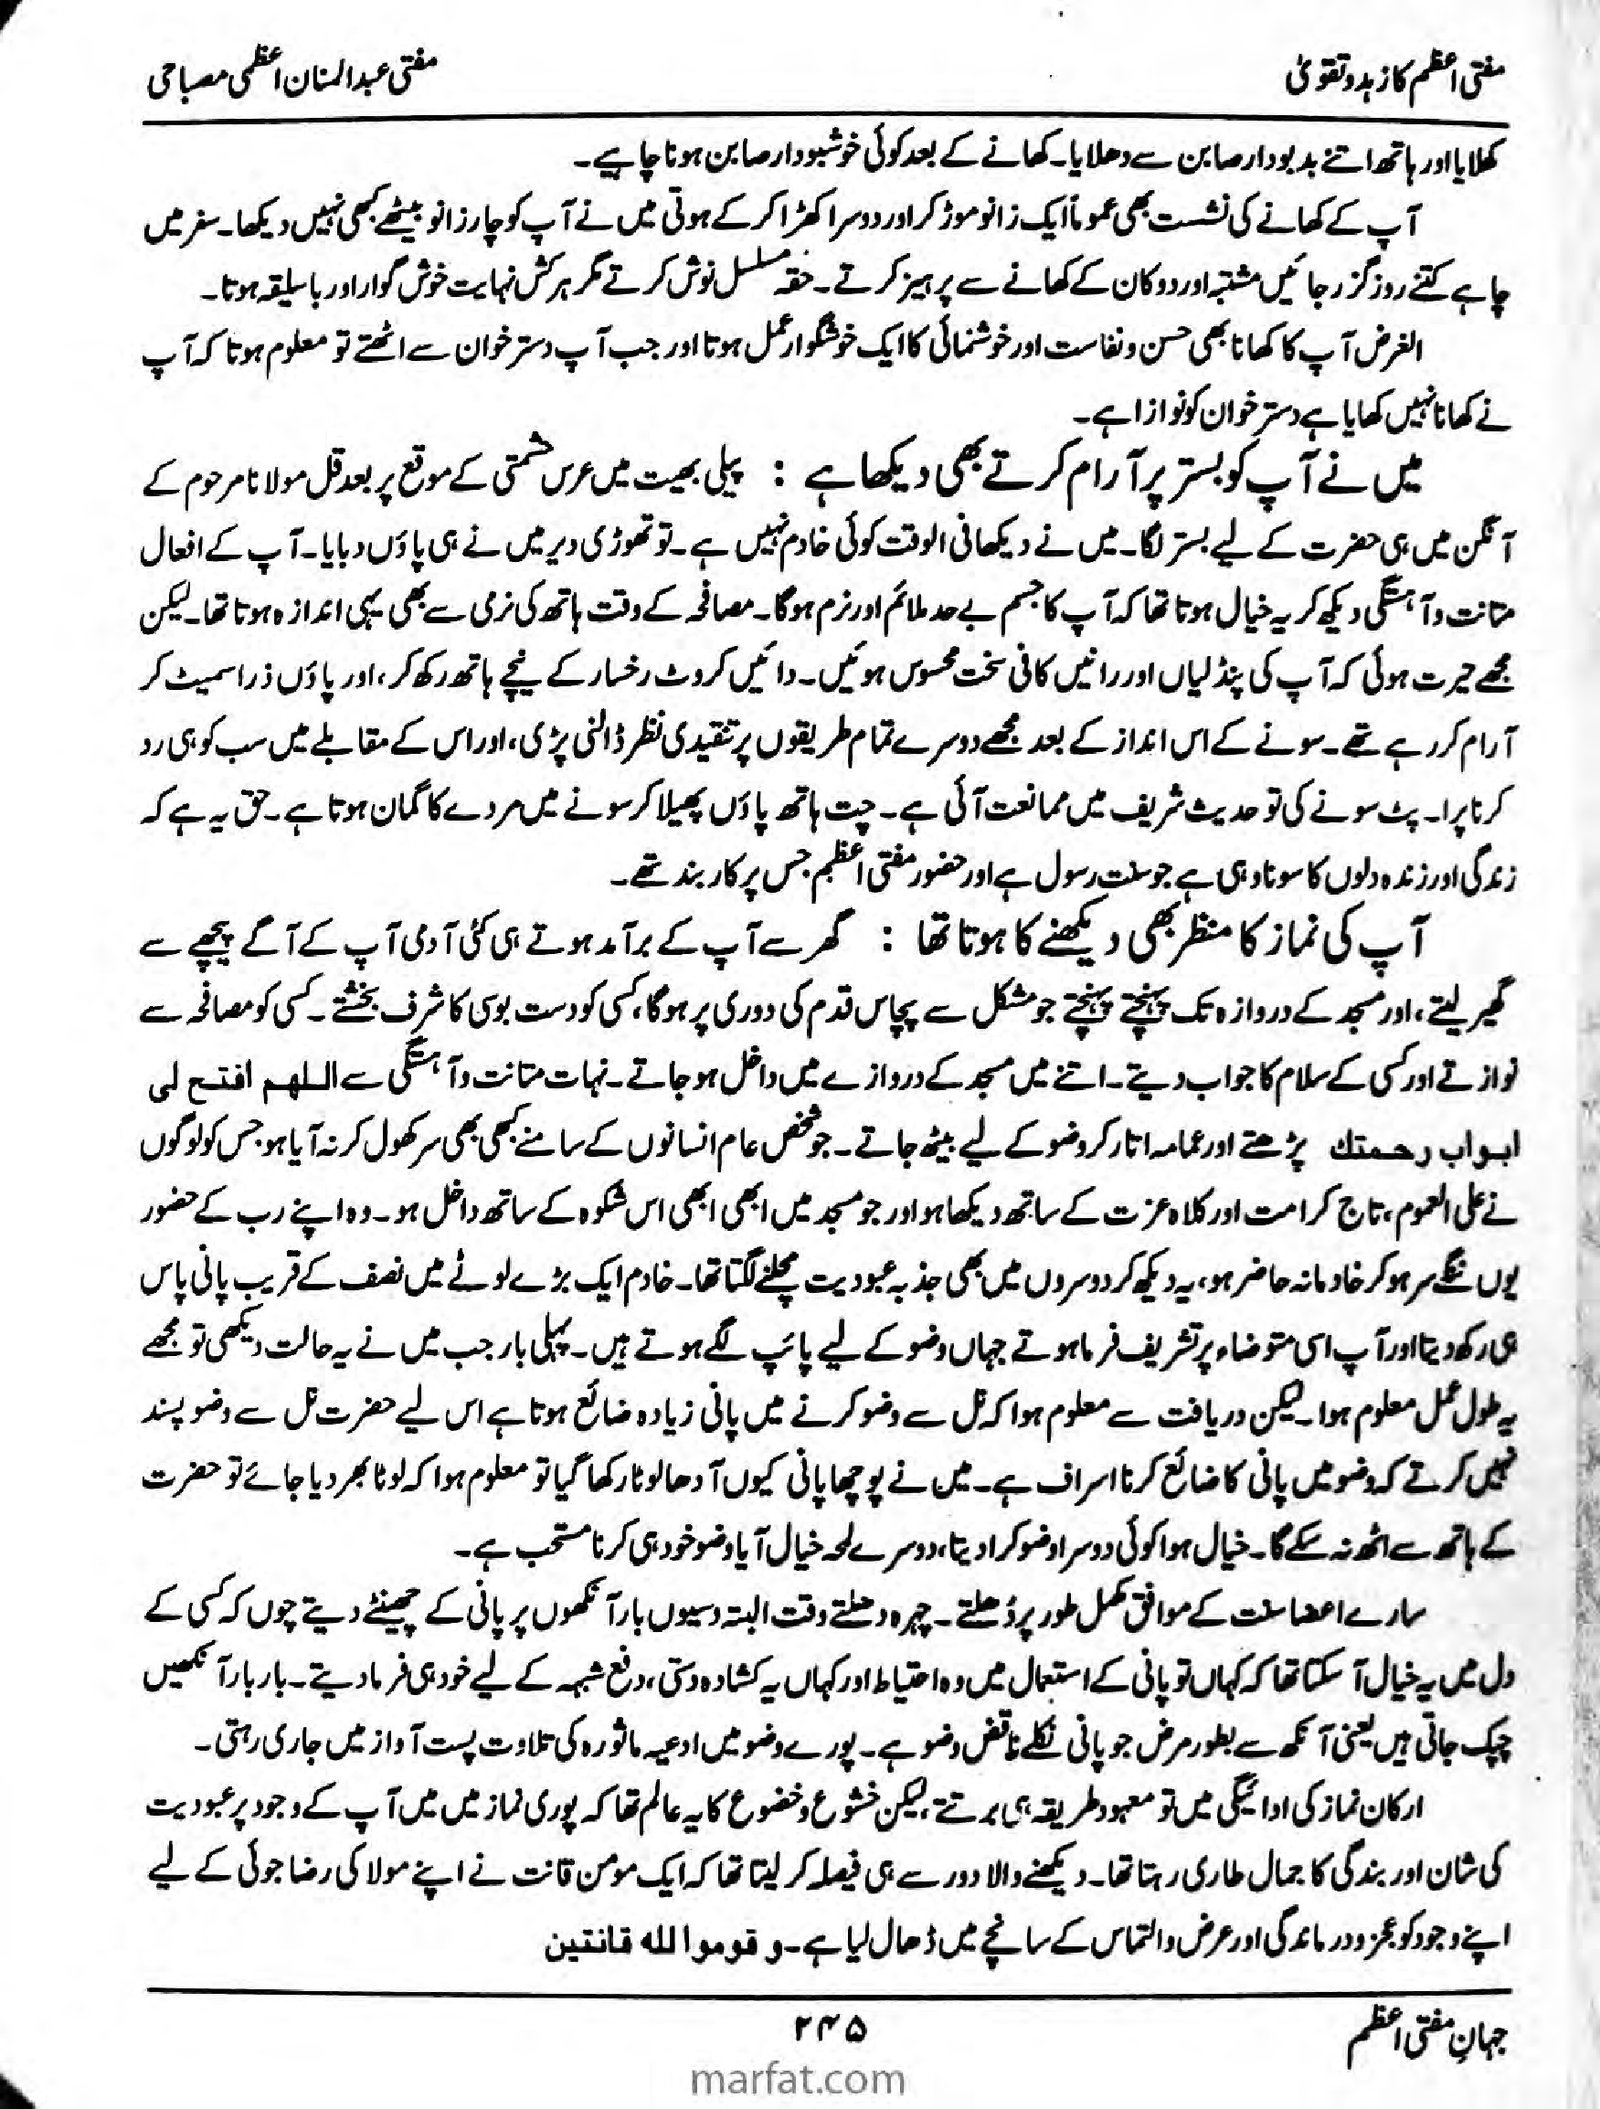 مفتی اعظم کا زہد و تقویٰ
مفتی عبدالمنان اعظمی مصباحی
کھلایا اور ہاتھ اتنے بدبودار صابن سے دھلایا۔ کھانے کے بعد کوئی خوشبودار صابن ہونا چاہیے۔
آپ کے کھانے کی نشست بھی عموماً ایک زانو موڑ کر اور دوسرا کھڑا کر کے ہوتی میں نے آپ کو چار زانو بیٹھے کبھی نہیں دیکھا۔ سفر میں
چاہے کتنے روز گزر جائیں مشتبہ اور دوکان کے کھانے سے پرہیز کرتے۔ حقہ مسلسل نوش کرتے مگر ہر کش نہایت خوش گوار اور باسلیقہ ہوتا۔
الغرض آپ کا کھانا بھی حسن و نفاست اور خوشنمائی کا ایک خوشگوار عمل ہوتا اور جب آپ دستر خوان سے اٹھتے تو معلوم ہوتا کہ آپ
نے کھانا نہیں کھایا ہے دستر خوان کو نوازا ہے۔
میں نے آپ کو بستر پر آرام کرتے بھی دیکھا ہے : پیلی بھیت میں عرس حشمتی کے موقع پر بعد قل مولانا مرحوم کے
آنگن میں ہی حضرت کے لیے بستر لگا۔ میں نے دیکھا فی الوقت کوئی خادم نہیں ہے۔ تو تھوڑی دیر میں نے ہی پاؤں دبایا۔ آپ کے افعال
متانت و آہستگی دیکھ کر یہ خیال ہوتا تھا کہ آپ کا جسم بے حد ملائم اور نرم ہوگا۔ مصافحہ کے وقت ہاتھ کی نرمی سے بھی یہی اندازہ ہوتا تھا۔ لیکن
مجھے حیرت ہوئی کہ آپ کی پنڈلیاں اور رانیں کافی سخت محسوس ہوئیں۔ دائیں کروٹ رخسار کے نیچے ہاتھ رکھ کر، اور پاؤں ذرا سمیٹ کر
آرام کر رہے تھے۔ سونے کے اس انداز کے بعد مجھے دوسرے تمام طریقوں پر تنقیدی نظر ڈالنی پڑی، اور اس کے مقابلے میں سب کو ہی رد
کرنا پرا۔ پٹ سونے کی تو حدیث شریف میں ممانعت آئی ہے۔ چت ہاتھ پاؤں پھیلا کر سونے میں مردے کا گمان ہوتا ہے۔ حق یہ ہے کہ
زندگی اور زندہ دلوں کا سونا وہی ہے جو سنت رسول ہے اور حضور مفتی اعظم جس پر کاربند تھے۔
آپ کی نماز کا منظر بھی دیکھنے کا ہوتا تھا : گھر سے آپ کے برآمد ہوتے ہی کئی آدمی آپ کے آگے پیچھے سے
گھیر لیتے، اور مسجد کے دروازہ تک پہنچتے پہنچتے جو مشکل سے پچاس قدم کی دوری پر ہوگا، کسی کو دست بوسی کا شرف بخشتے۔ کسی کو مصافحہ سے
نوازتے اور کسی کے سلام کا جواب دیتے۔ اتنے میں مسجد کے دروازے میں داخل ہو جاتے۔ نہات متانت و آہستگی سے اللهم افتح لی
ابواب رحمتك پڑھتے اور عمامہ اتار کر وضو کے لیے بیٹھ جاتے۔ جو شخص عام انسانوں کے سامنے کبھی بھی سر کھول کر نہ آیا ہو جس کو لوگوں
نے علی العموم، تاج کرامت اور کلاہ عزت کے ساتھ دیکھا ہو اور جو مسجد میں ابھی ابھی اس شکوہ کے ساتھ داخل ہو۔ وہ اپنے رب کے حضور
یوں ننگے سر ہو کر خادمانہ حاضر ہو، یہ دیکھ کر دوسروں میں بھی جذبہ عبودیت مچلنے لگتا تھا۔ خادم ایک بڑے لوٹے میں نصف کے قریب پانی پاس
ہی رکھ دیتا اور آپ اسی متوضاء پر تشریف فرما ہوتے جہاں وضو کے لیے پائپ لگے ہوتے ہیں۔ پہلی بار جب میں نے یہ حالت دیکھی تو مجھے
یہ طول عمل معلوم ہوا۔ لیکن دریافت سے معلوم ہوا کہ نل سے وضو کرنے میں پانی زیادہ ضائع ہوتا ہے اس لیے حضرت نل سے وضو پسند
نہیں کرتے کہ وضو میں پانی کا ضائع کرنا اسراف ہے۔ میں نے پوچھا پانی کیوں آدھا لوٹا رکھا گیا تو معلوم ہوا کہ لوٹا بھر دیا جائے تو حضرت
کے ہاتھ سے اٹھ نہ سکے گا۔ خیال ہوا کوئی دوسرا وضو کرا دیتا، دوسرے لمحہ خیال آیا وضو خود ہی کرنا مستحب ہے۔
سارے اعضا سنت کے موافق مکمل طور پر دُھلتے۔ چہرہ دھلتے وقت البتہ دسیوں بار آنکھوں پر پانی کے چھینٹے دیتے چوں کہ کسی کے
دل میں یہ خیال آ سکتا تھا کہ کہاں تو پانی کے استعمال میں وہ احتیاط اور کہاں یہ کشادہ دستی، دفع شبہہ کے لیے خود ہی فرما دیتے۔ بار بار آنکھیں
چپک جاتی ہیں یعنی آنکھ سے بطور مرض جو پانی نکلے ناقض وضو ہے۔ پورے وضو میں ادعیہ ماثورہ کی تلاوت پست آواز میں جاری رہتی۔
ارکان نماز کی ادائیگی میں تو معہود طریقہ ہی برتتے، لیکن خشوع و خضوع کا یہ عالم تھا کہ پوری نماز میں میں آپ کے وجود پر عبودیت
کی شان اور بندگی کا جمال طاری رہتا تھا۔ دیکھنے والا دور سے ہی فیصلہ کر لیتا تھا کہ ایک مومن قانت نے اپنے مولا کی رضا جوئی کے لیے
اپنے وجود کو عجز و درماندگی اور عرض والتماس کے سانچے میں ڈھال لیا ہے۔ و قوموا لله قانتین
جہانِ مفتی اعظم
۲۴۵
marfat.com